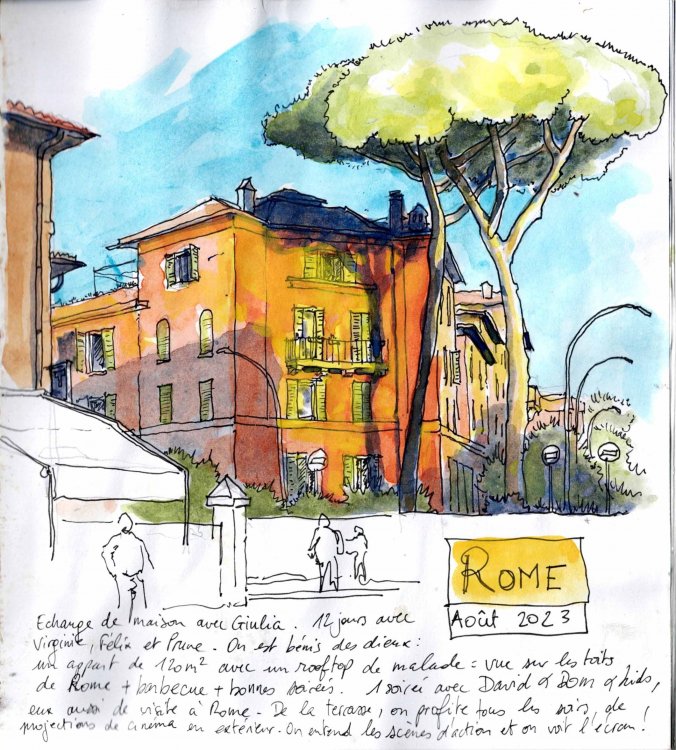 ROME
Août 2023
Echange de maison avec Giulia. 12 jours avec
Virginie, Félix et Prune. On est bénis des dieux:
un appart de 120m² avec un rooftop de malade = vue sur les toits
de Rome + barbecue + bonnes soirées. 1 soirée avec David & Bom & kids,
eux aussi de visite à Rome. De la terrasse, on profite tous les soirs, de
projections de cinéma en extérieur. On entend les scènes d'action et on voit l'écran!